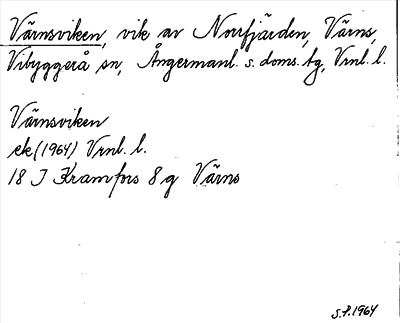 Värnsviken, vik av Norrfjärden, Värns,
Vibyggerå sn, Ångermanl. s. doms. tg, Vrnl. l.
Värnsviken
ek (1964) Vrnl. l.
18 J Kramfors 8 g Värns
S.F. 1964